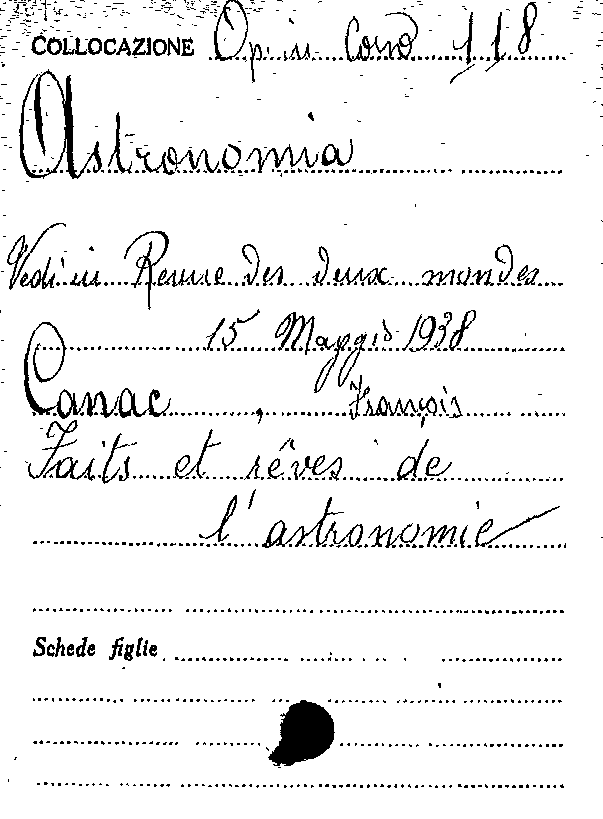 COLLOCAZIONE Op. in Corso 118
Astronomia
Vedi in Revue des deux mondes
15 Maggio 1938
Canac, François
Faits et rêves de
l'astronomie
Schede figlie